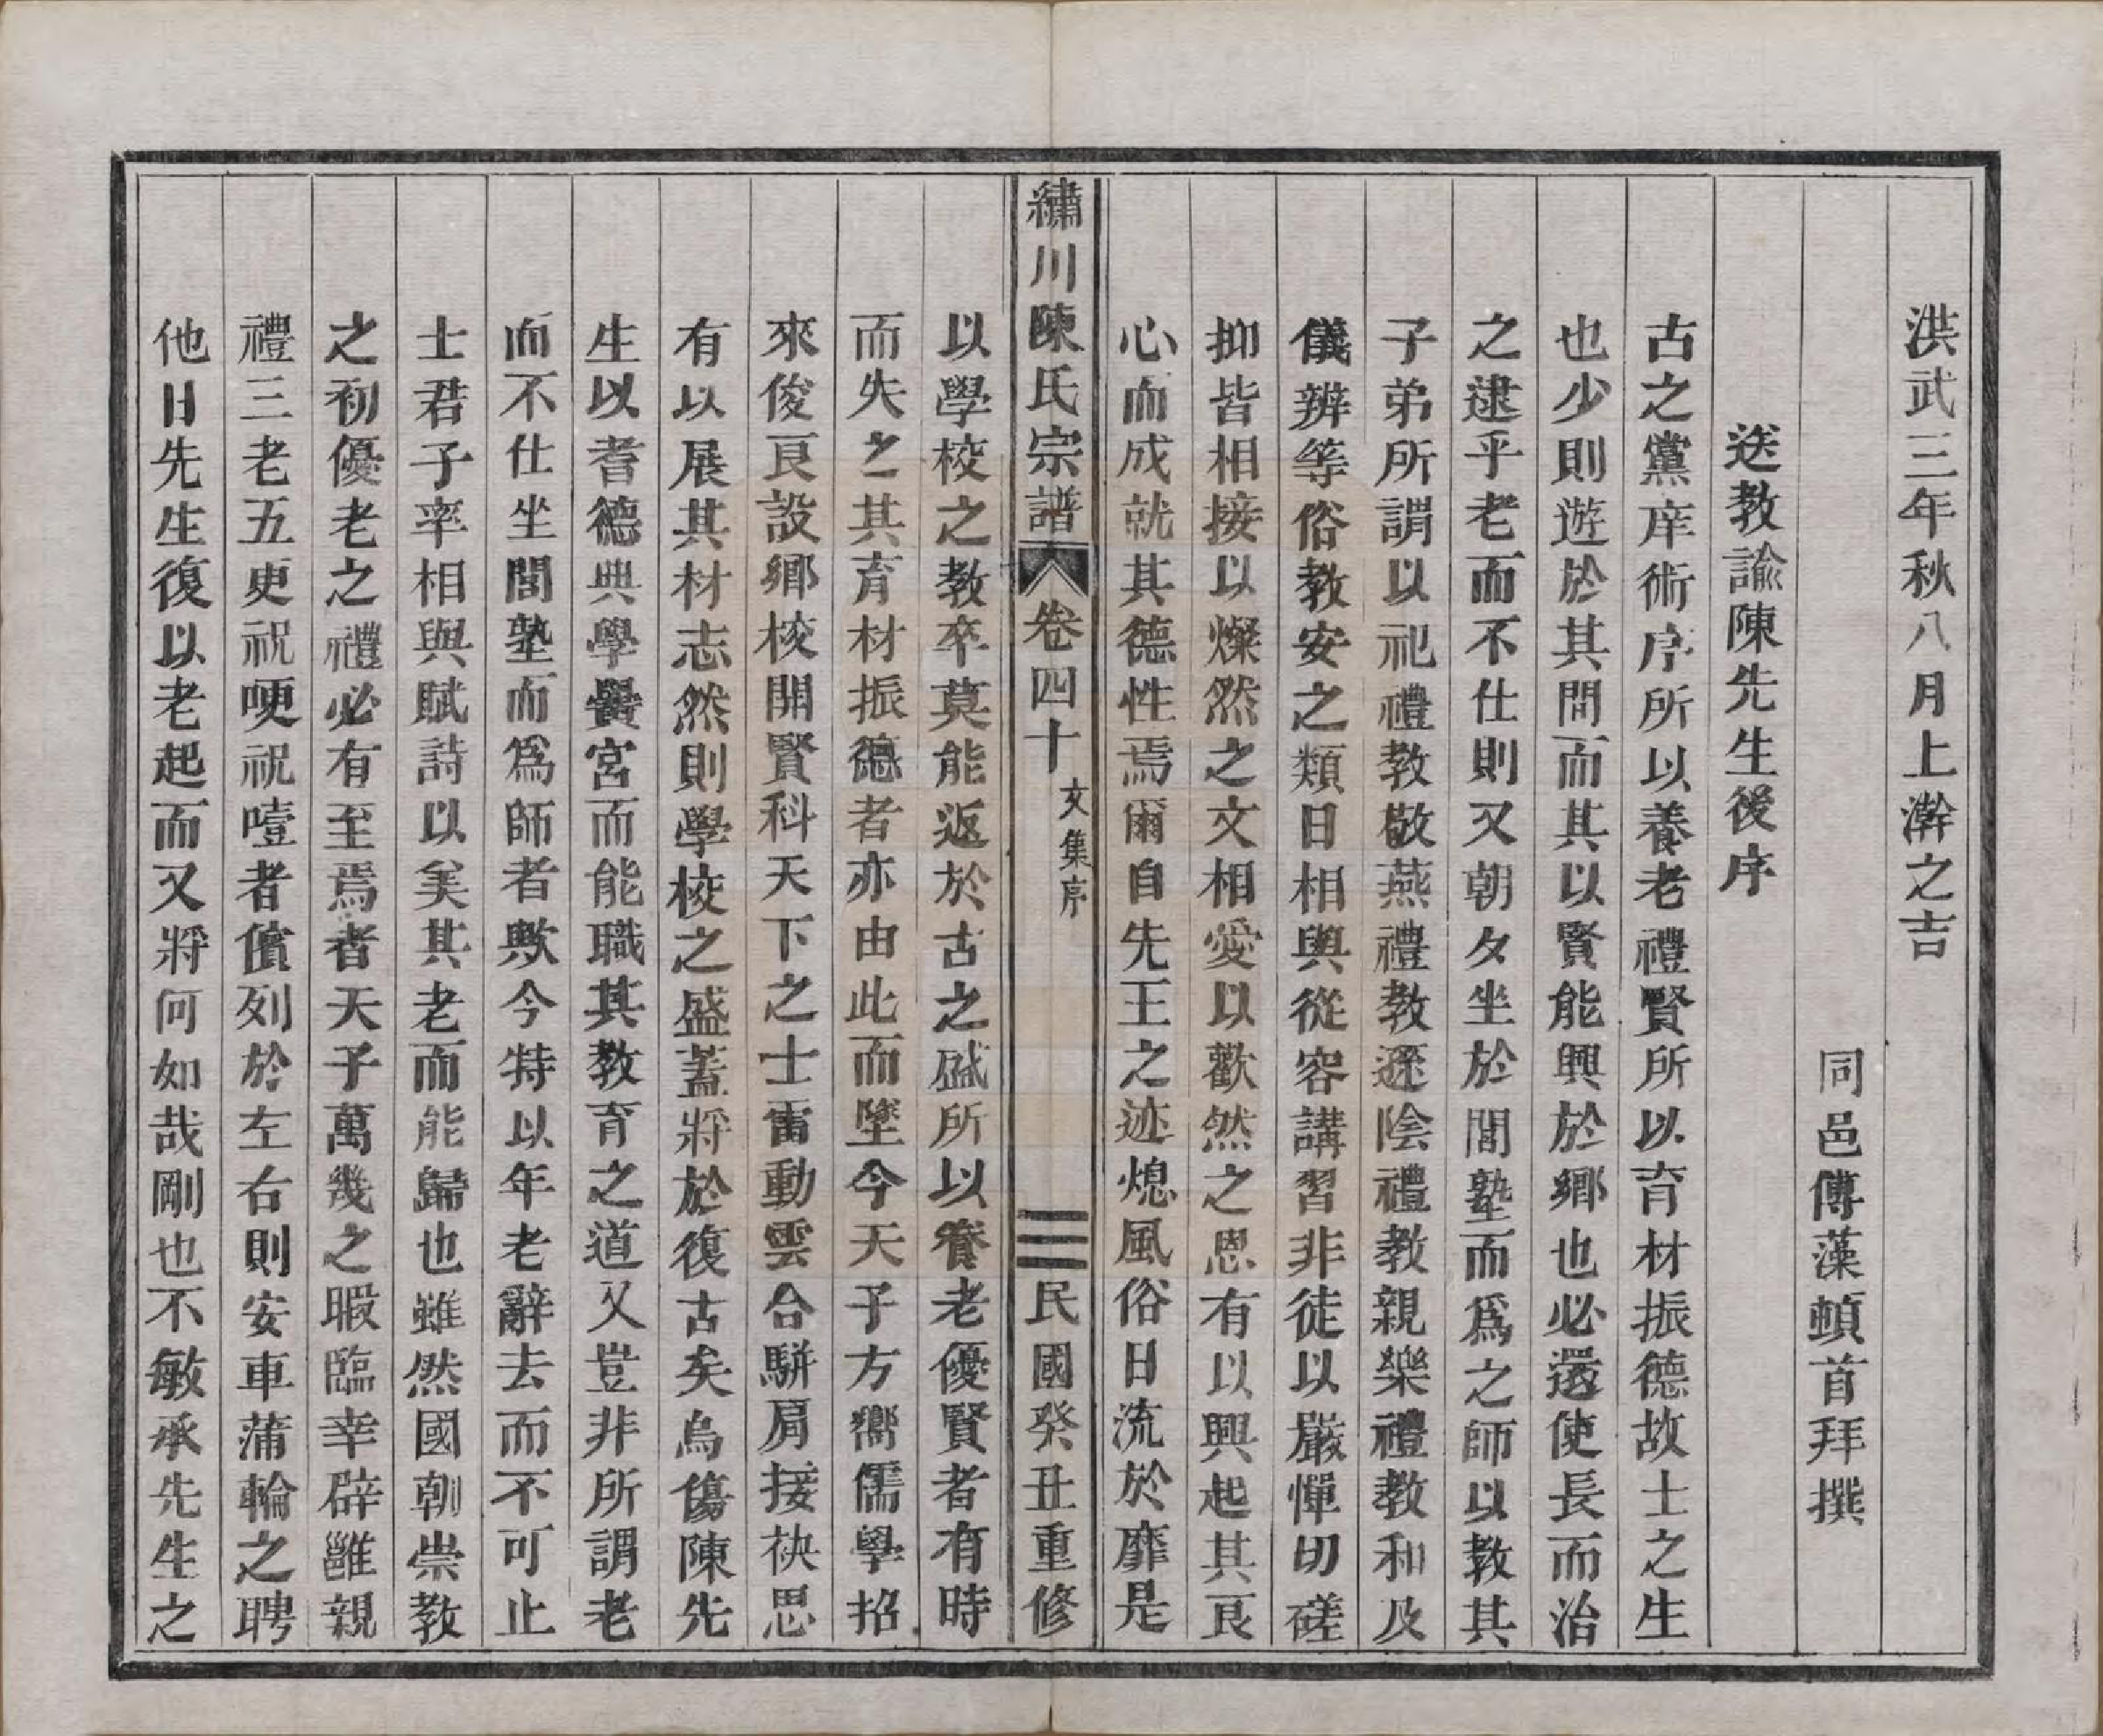 洪武三年秋八月上澣之吉
同邑傅藻頓首拜撰
送教諭陳先生後序
古之黨庠術序所以養老禮賢所以育材振德故士之生
也少則遊於其間而其以賢能興於鄉也必還使長而治
之逮乎老而不仕則又朝夕坐於閭塾而爲之師以教其
子弟所謂以祀禮教敬燕禮教遜陰禮教親樂禮教和及
儀辨等俗教安之類日相與從容講習非徒以嚴憚切磋
抑皆相接以燦然之文相愛以歡然之恩有以興起其良
心而成就其德性焉爾自先王之迹熄風俗日流於靡是
繡川陳氏宗譜 卷四十 文集序 三 民國癸丑重修
以學校之教卒莫能返於古之盛所以養老優賢者有時
而失之其育材振德者亦由此而墜今天子方嚮儒學招
來俊良設鄉校開賢科天下之士雷動雲合駢肩接袂思
有以展其材志然則學校之盛蓋將於復古矣烏傷陳先
生以耆德典學黌宮而能職其教育之道又豈非所謂老
而不仕坐閭塾而爲師者歟今特以年老辭去而不可止
士君子率相與賦詩以美其老而能歸也雖然國朝崇教
之初優老之禮必有至焉者天子萬幾之暇臨幸辟雝親
禮三老五更祝哽祝噎者儐列於左右則安車蒲輪之聘
他日先生復以老起而又將何如哉剛也不敏承先生之